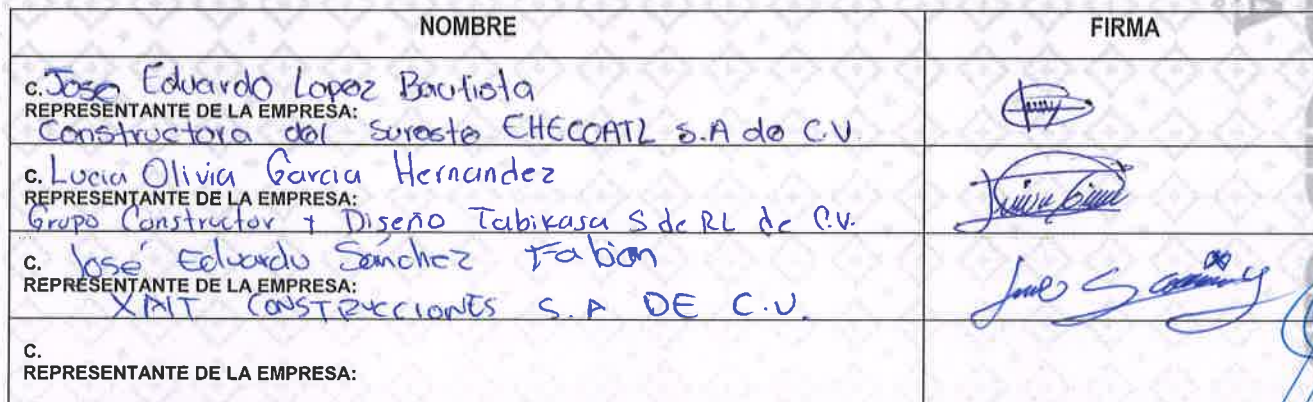 NOMBRE FIRMA
C. Jose Eduardo Lopez Bautista
REPRESENTANTE DE LA EMPRESA:
Constructora del Sureste EHECOATL S.A de C.V.
C. Lucia Olivia Garcia Hernandez
REPRESENTANTE DE LA EMPRESA:
Grupo Constructor y Diseño Tabikasa S de RL de C.V.
C. José Eduardo Sánchez Fabian
REPRESENTANTE DE LA EMPRESA:
CONSTRUCCIONES S.A DE C.V.
C.
REPRESENTANTE DE LA EMPRESA: